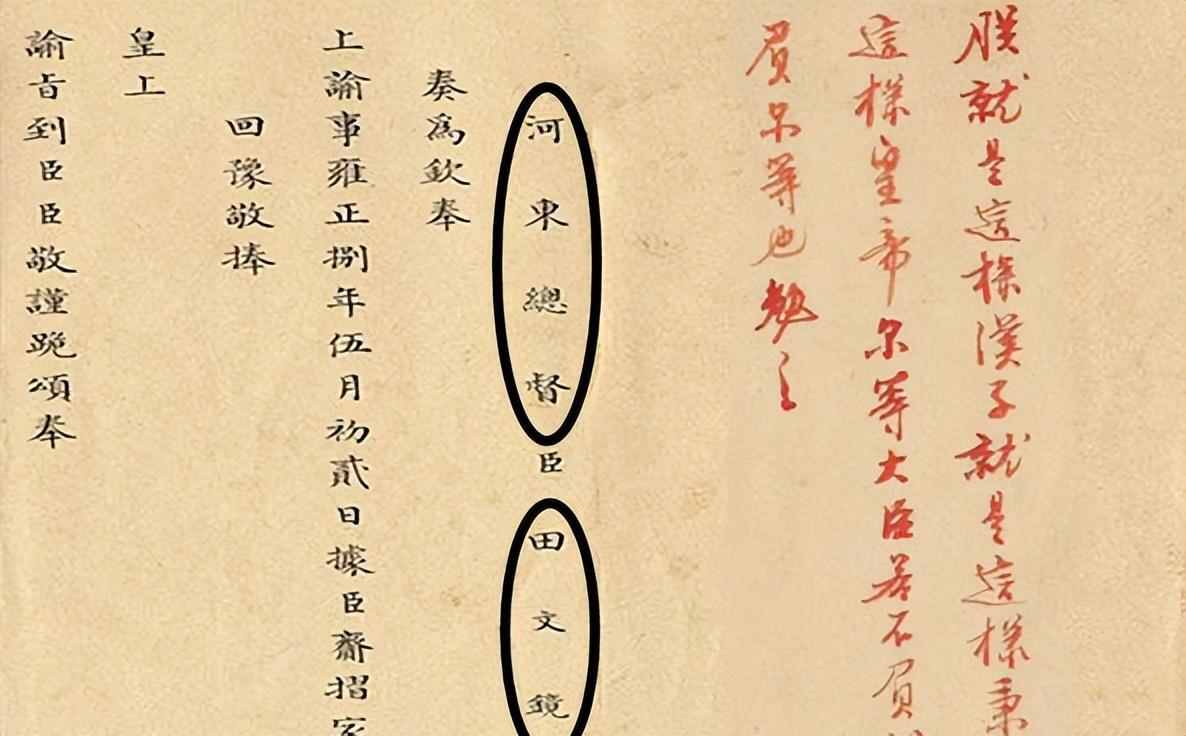 朕就是這樣漢子就是這樣秉
這樣皇帝尔等大臣若不負
負尔等也勉之
河東總督臣田文鏡
奏爲欽奉
上諭事雍正捌年伍月初貳日據臣齋摺家
回豫敬捧
皇上
諭旨到臣臣敬謹跪頌奉